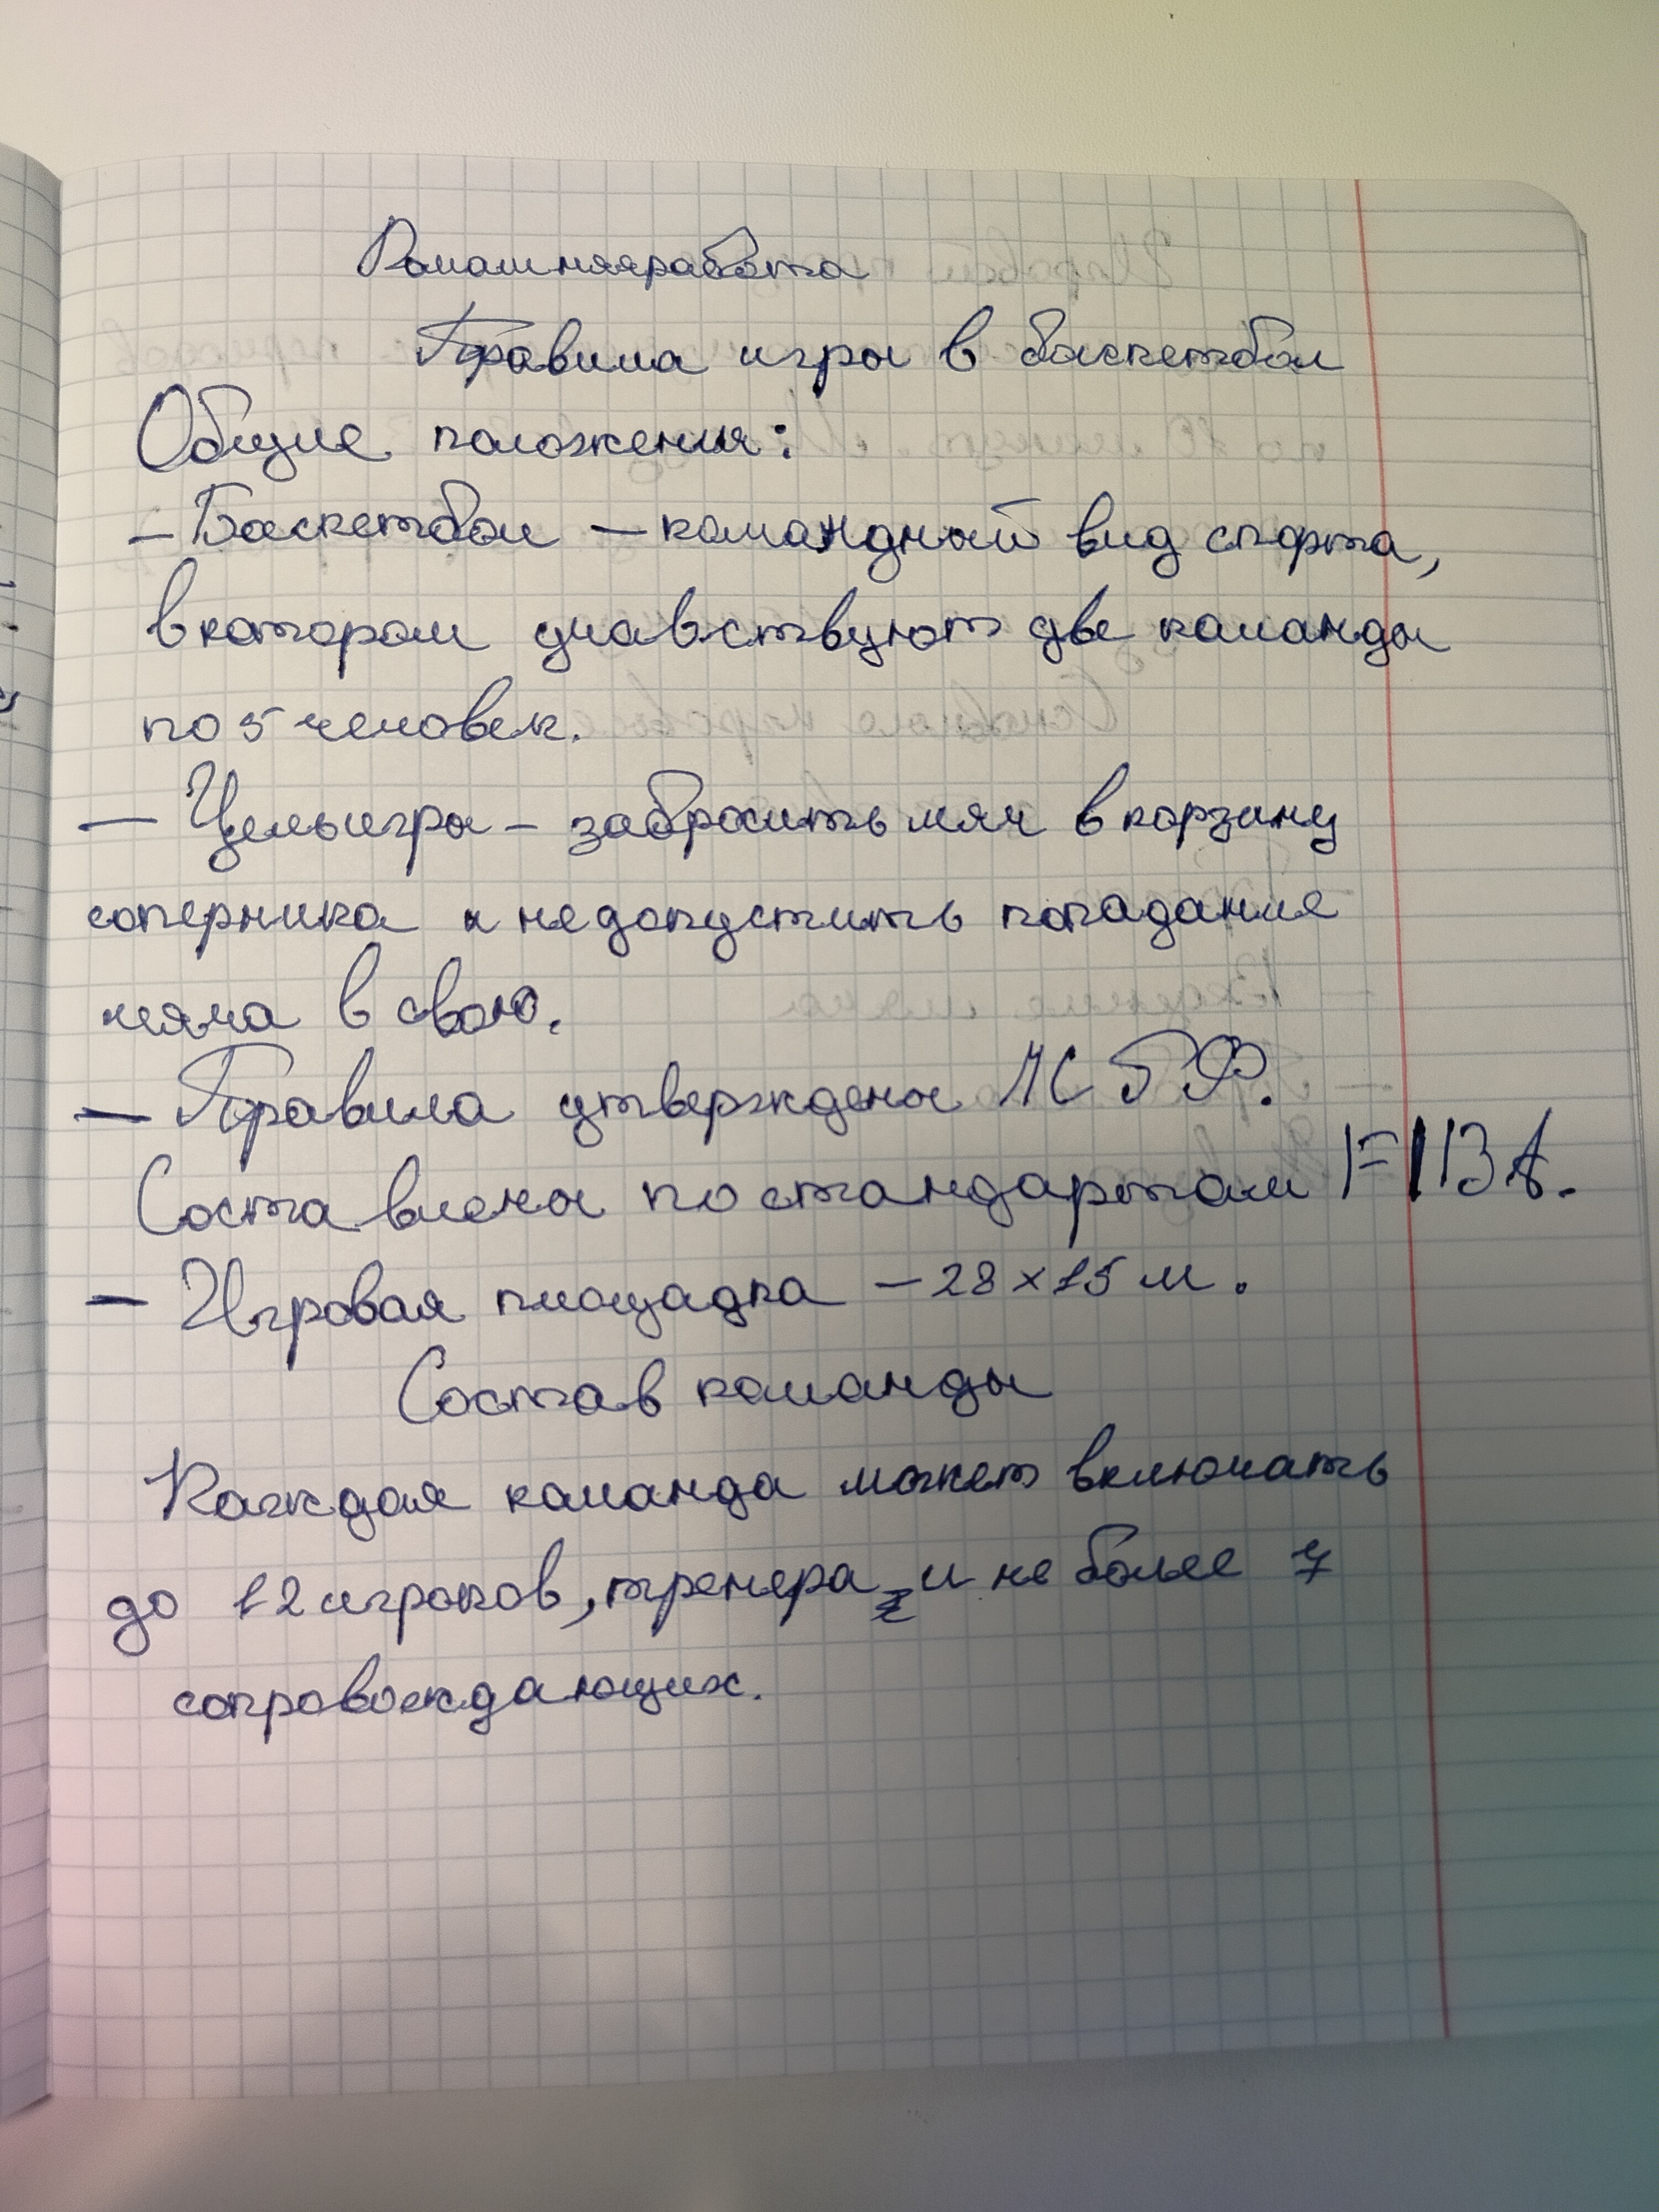 Домашняя работа
Правила игры в баскетбол
Общие положения:
– Баскетбол – командный вид спорта,
в котором учавствуют две команды
по 5 человек.
– Цель игры – забросить мяч в корзину
соперника и не допустить попадание
мяча в свою.
– Правила утверждены МБФ.
Составлены по стандартам FIBA.
– Игровая площадка – 28×15 м.
Состав команды
Каждая команда может включать
до 12 игроков, тренера и не более 7
сопровождающих.